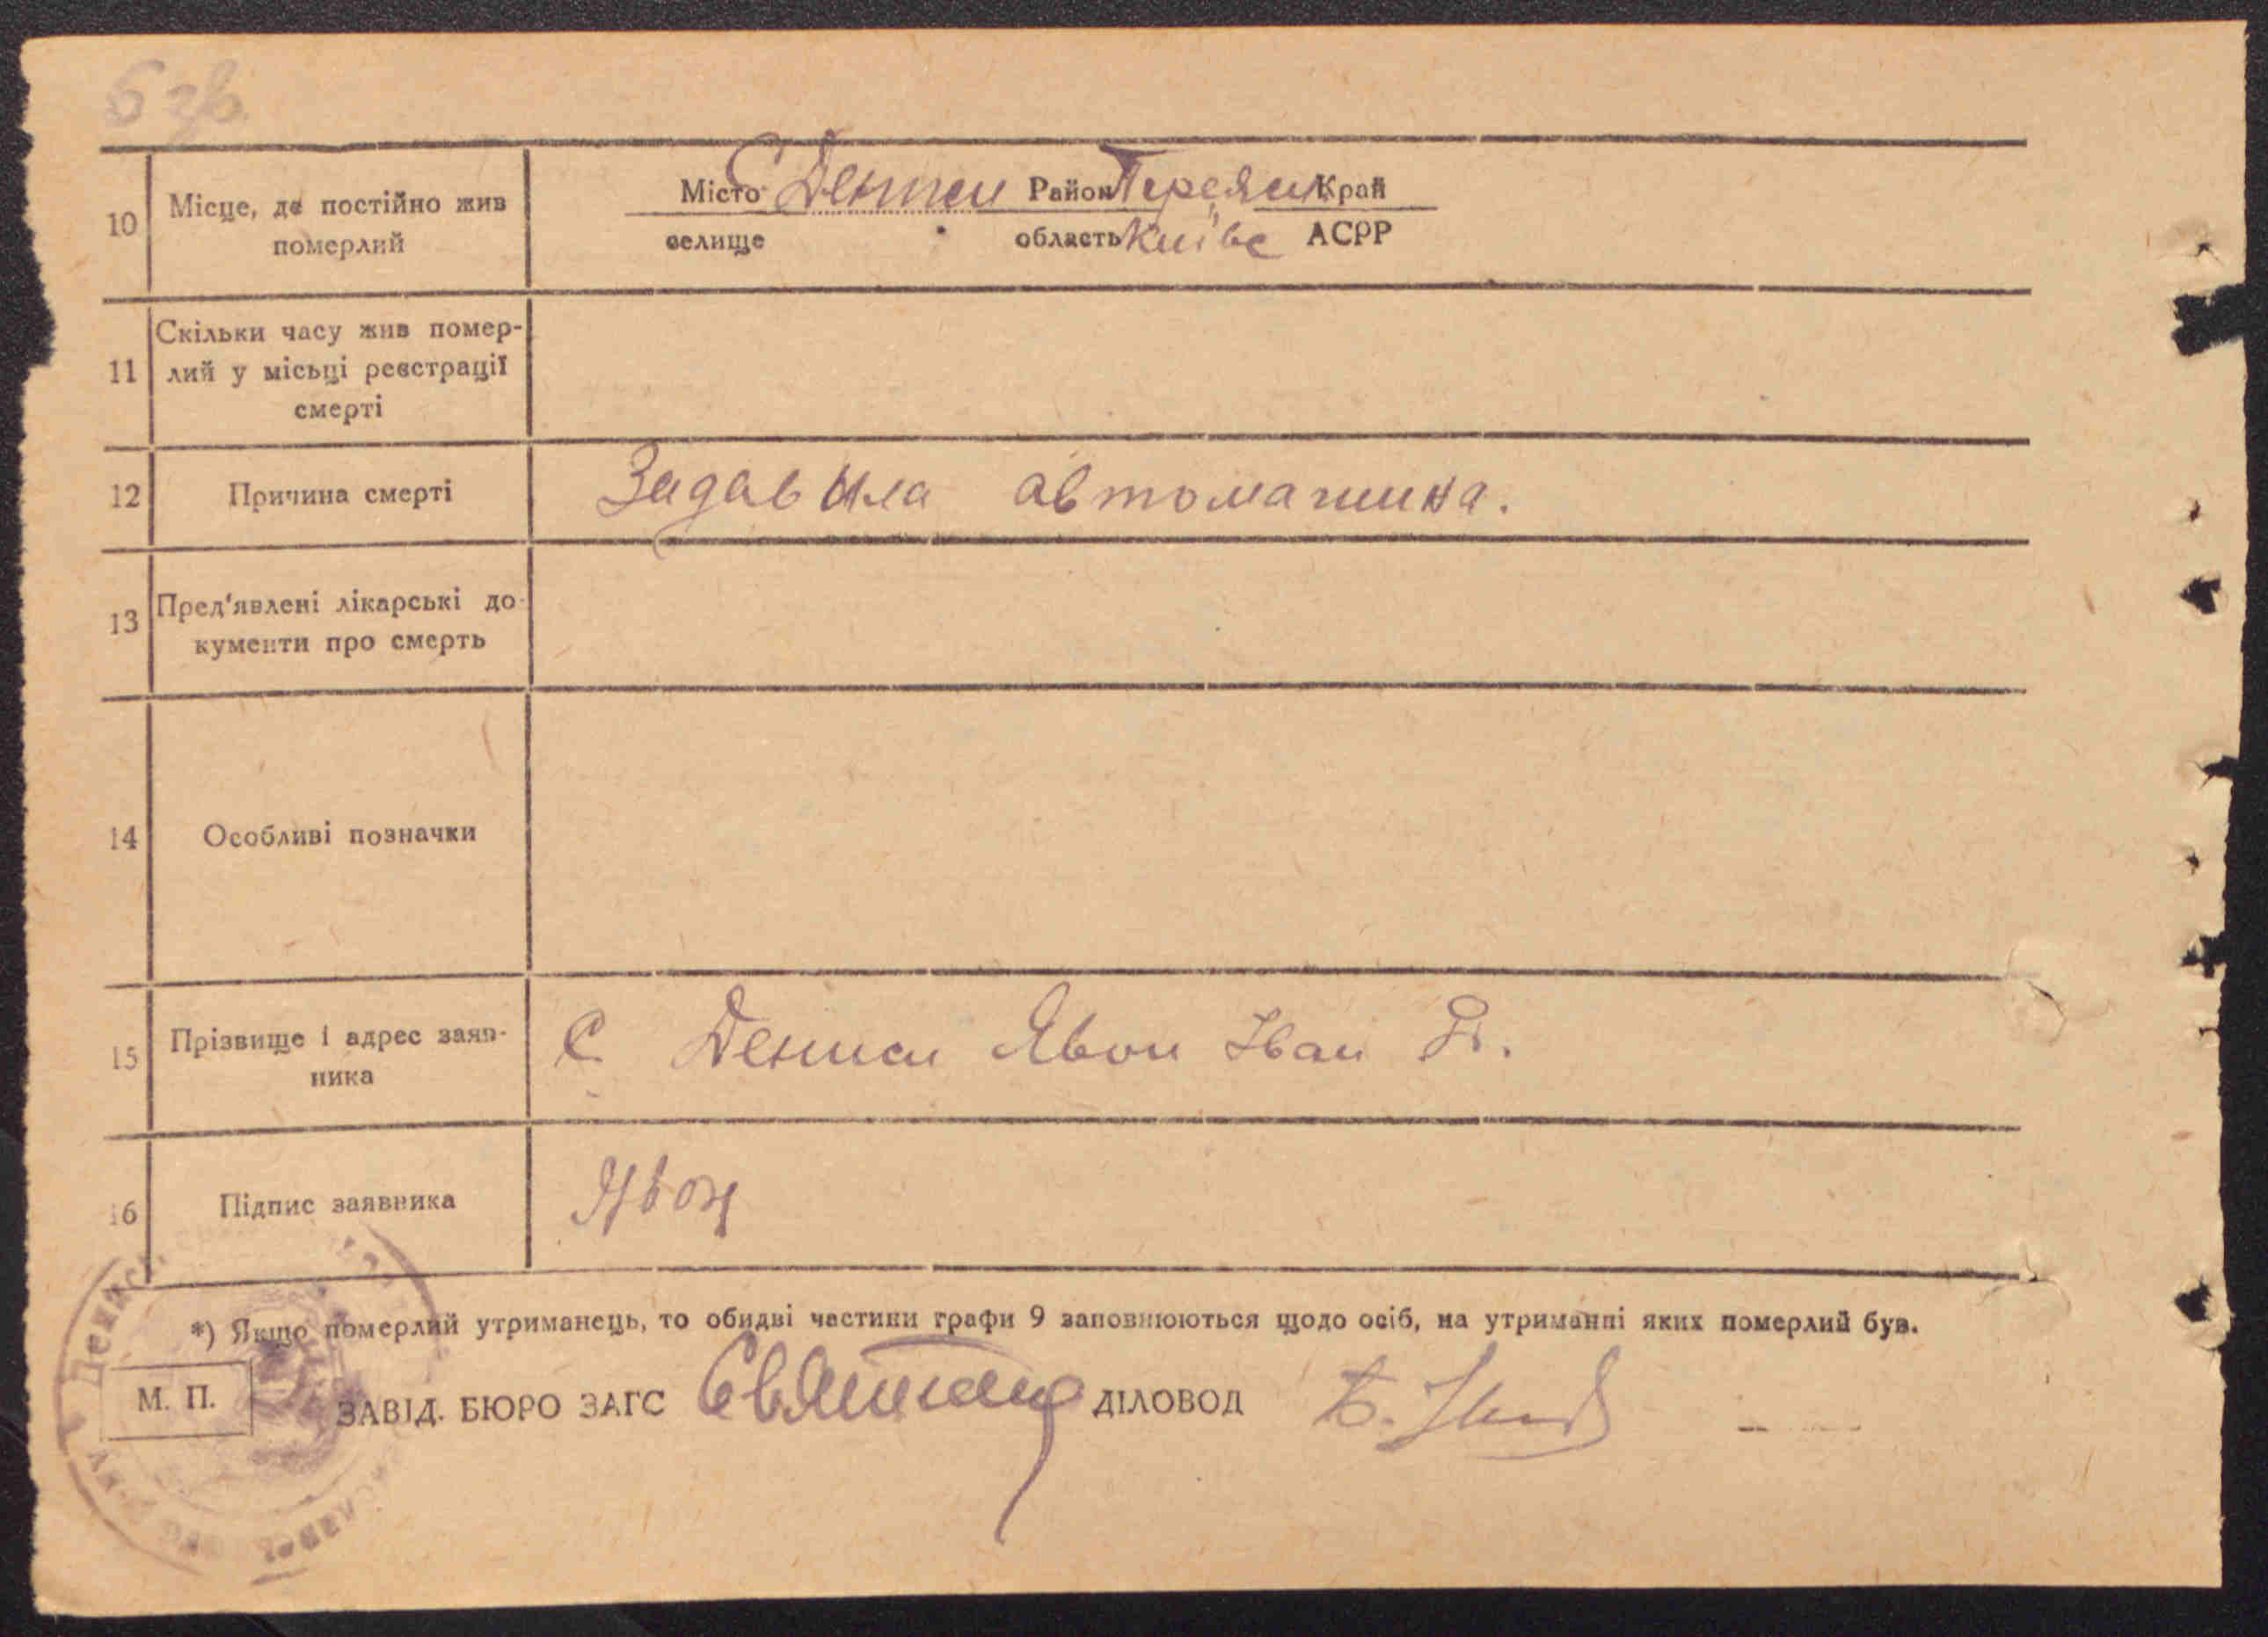 10 Місце, де постійно жив
померлий
Місто С Дениси Район Переясл Край
селище область Київс АСРР
11 Скільки часу жив помер-
лий у місьці реєстрації
смерті
12 Причина смерті Задавила автомашина.
13 Пред'явлені лікарські до-
кументи про смерть
14 Особливі позначки
15 Прізвище і адрес заяв-
ника
С. Дениси Явон Іван
16 Підпис заявника Явон
*) Якщо померлий утриманець, то обидві частини графи 9 заповнюються щодо осіб, на утриманні яких померлий був.
М. П. ЗАВІД. БЮРО ЗАГС ДІЛОВОД